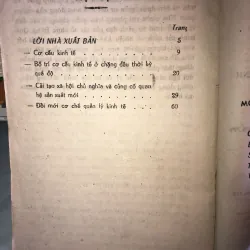 Trang
LỜI NHÀ XUẤT BẢN 5
— Cơ cấu kinh tế . . . . . . . 9
— Bố trí cơ cấu kinh tế ở chặng đầu thời kỳ
quá độ . . . . . . . . . 20
— Cải tạo xã hội chủ nghĩa và củng cố quan
hệ sản xuất mới . . . . . . . 29
— Đổi mới cơ chế quản lý kinh tế . . . . 60